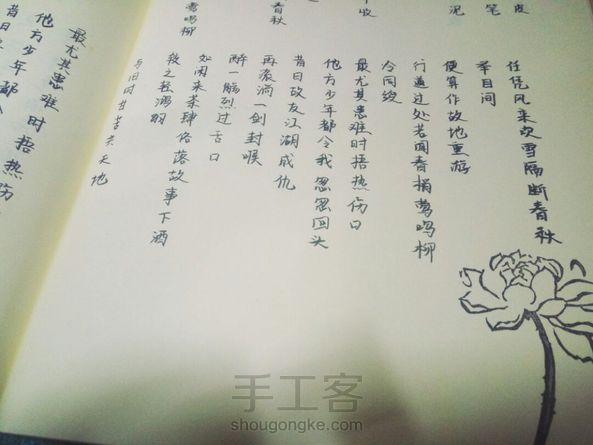 皮
笔
泥
收
春秋
莺鸣柳
任凭风来吹雪隔断春秋
举目间
便算作故地重游
行遍过处若闻春捎莺鸣柳
今同
最尤其患难时捂热伤口
他方少年都令我忽忽回头
昔日故友江湖成仇
再滚淌一剑封喉
醉一腩烈过舌口
如闲来茶肆佐落故事下酒
较之轻鸿羽
与旧时甘苦共天地
最尤其患难时捂热伤
他方少年都令
昔日
手工客
shougongke.com